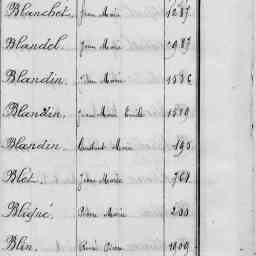 Blanchet. Jean Marie 1287
Blandel. Jean Marie 987
Blandin. Jean Marie
Blandin. Jean Marie Emile 1559
Blandin. Marie 195
Blet. Marie 761
Bliqué. Pierre Marie 200
Blin. René Pierre 1909